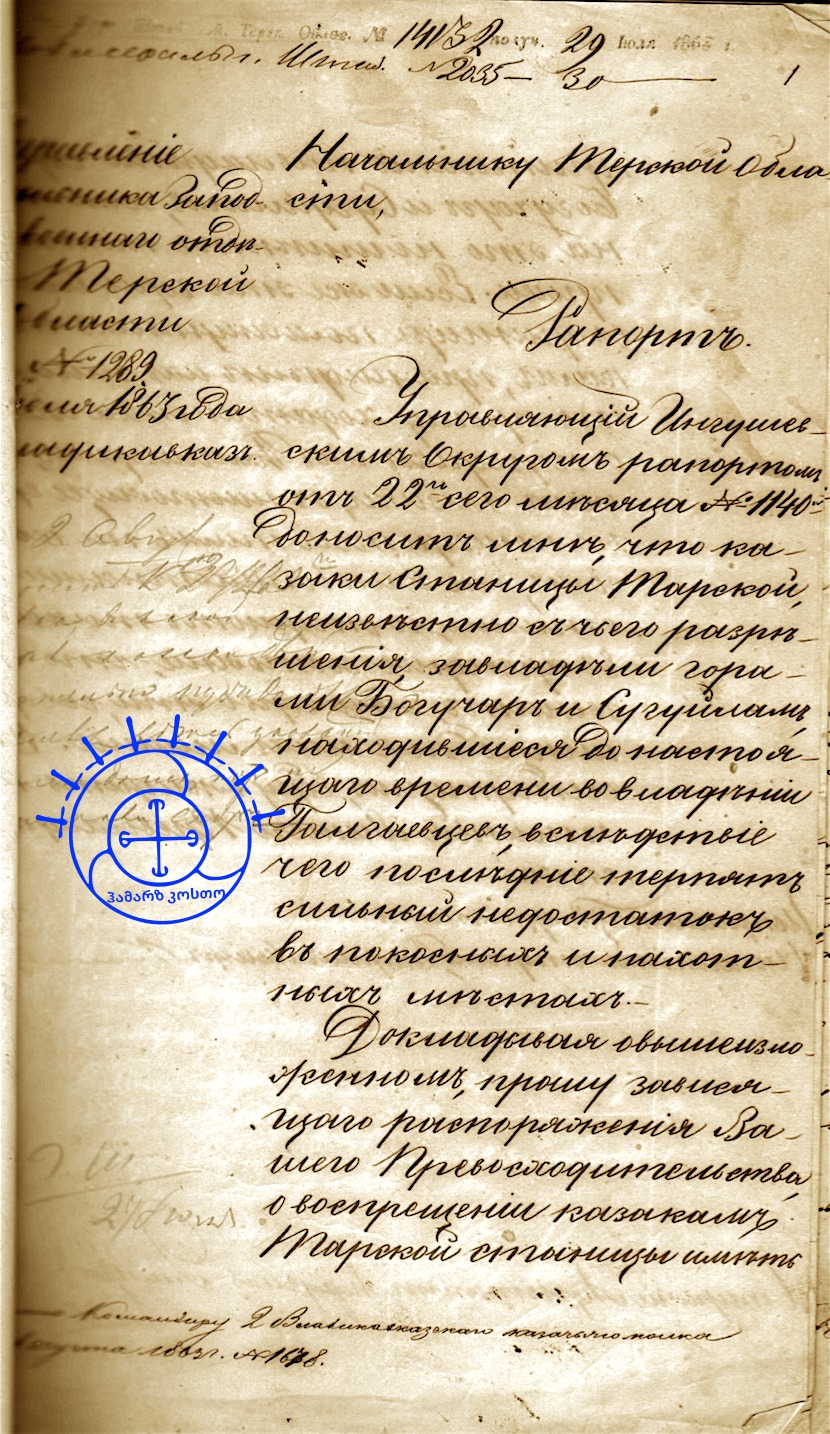 Терск. Облас. № 14132 получ. 29 Іюля 1863 г.
Штаб. №2035— 30
1
Начальнику Терской Обла
сти,
Рапортъ.
Управленіе
Запад-
наго отдѣ-
Терской
области
№ 1289
1863 года
Владикавказъ.
Управляющій Ингушев-
скимъ Округомъ рапортомъ
отъ 22го сего мѣсяца № 1140й
доноситъ мнѣ, что ка-
заки Станицы Тарской,
неизвѣстно съ чьего разрѣ-
шенія, завладѣли гора-
ми Богучаръ и Сугуйламъ,
находившіеся до настоя-
щаго времени во владѣніи
Галгаевцевъ, вслѣдствіе
чего послѣдніе терпятъ
сильный недостатокъ
въ покосныхъ и пахот-
ныхъ мѣстахъ.—
Докладывая о вышеизло-
женномъ, прошу завися-
щаго распоряженія Ва-
шего Превосходительства,
о воспрещеніи казакамъ
Тарской станицы имѣть
2 Авг
ჰამარზ კოსთო
Командиру 2 Владикавказскаго казачьяго полка
Августа 1863г. №1678.